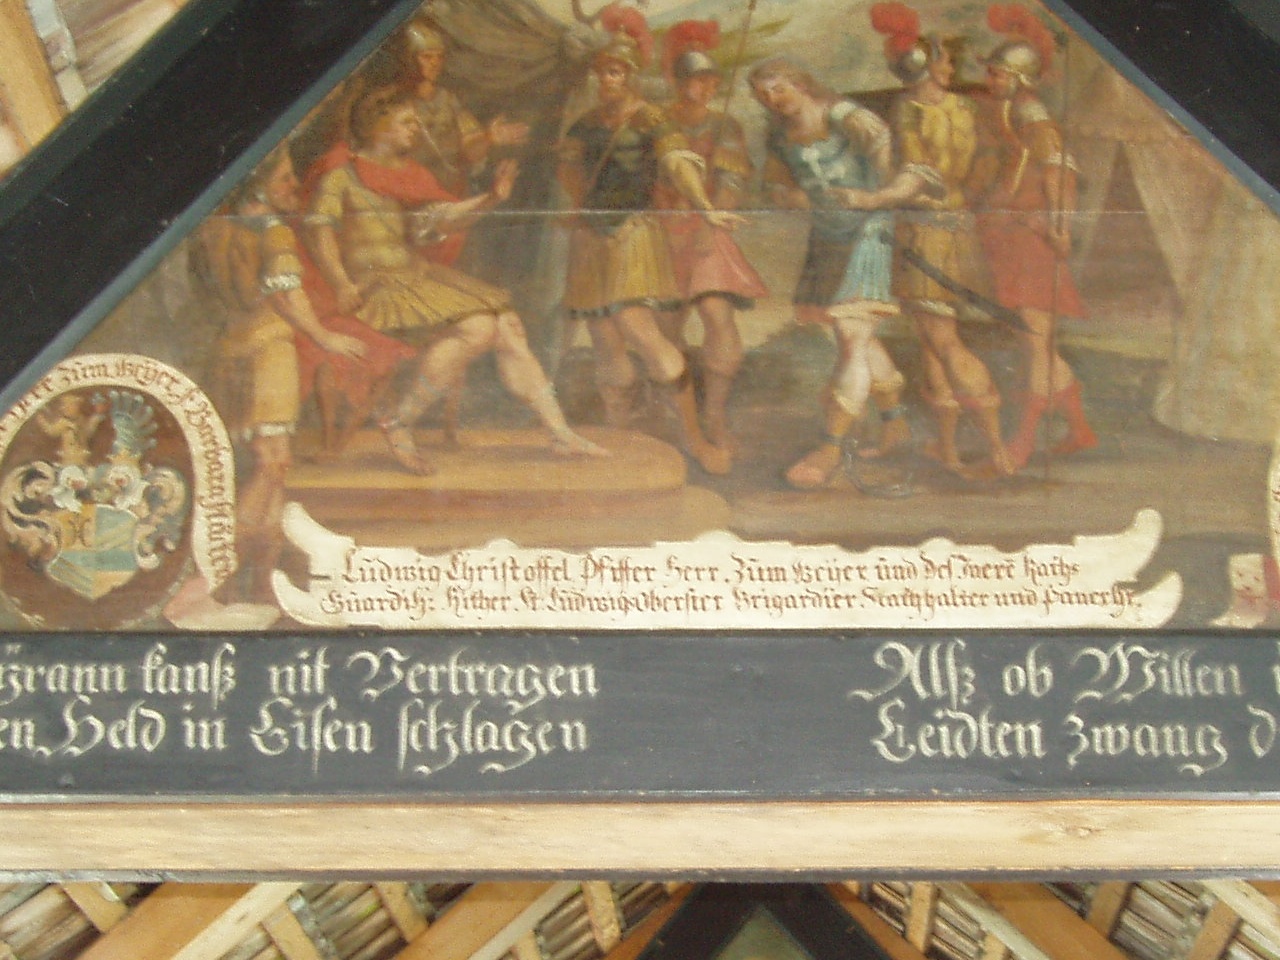 zum Weÿer, f. Barbara
Ludwig Christoffel Pfiffer Herr. Zum Weÿer und Des Inerē Raths
Guardih: Rither. St. Ludwigs Oberster Brigardier. Stathhalter und
ÿrann kanß nit Vertragen
en Held in Eisen schlagen
Alß ob Willen
Leidten zwang d